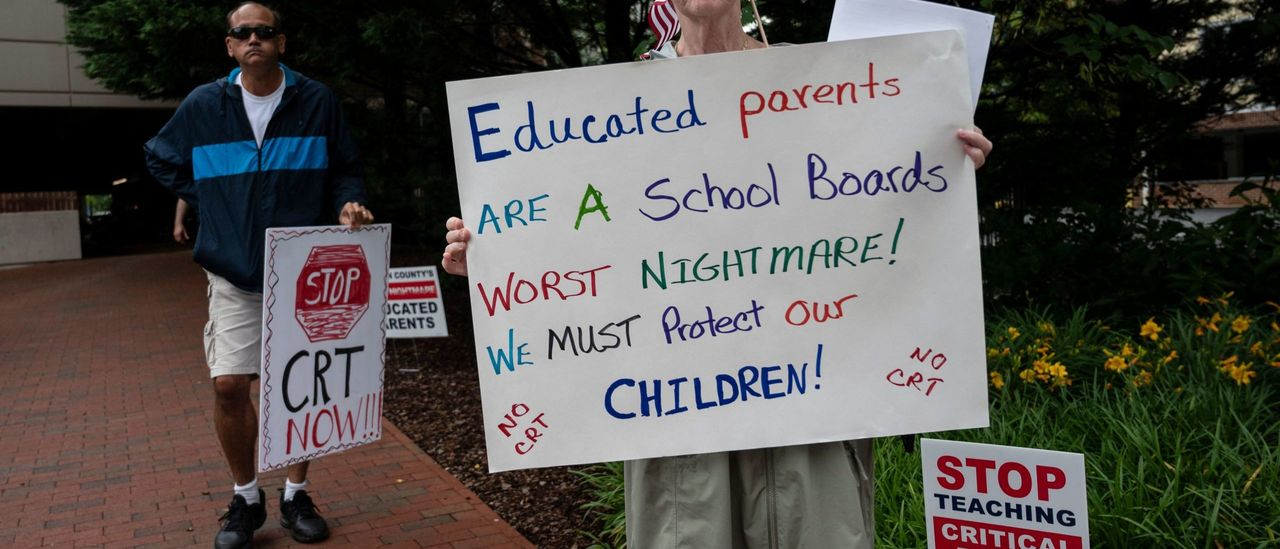 Educated parents
ARE A School Boards
WORST NIGHTMARE!
WE MUST Protect our
CHILDREN!
NO
CRT
NO
CRT
STOP
CRT
NOW!!!
COUNTY'S
NIGHTMARE
STOP
TEACHING
CRITICAL